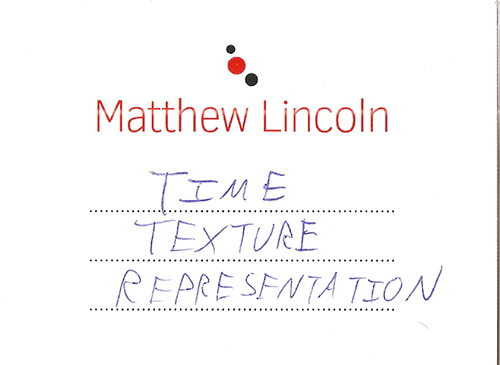 Matthew Lincoln
TIME
TEXTURE
REPRESENTATION